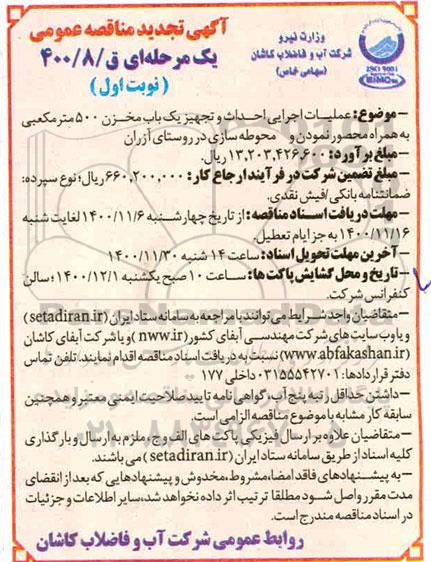 آگهی تجدید مناقصه عمومی
یک مرحله‌ای ق/۴۰۰/۸
(نوبت اول)
وزارت نیرو
شرکت آب و فاضلاب کاشان
(سهامی خاص)
ISO 9001
–موضوع: عملیات اجرایی احداث و تجهیز یک باب مخزن ۵۰۰ مترمکعبی
به همراه محصور نمودن و محوطه سازی در روستای آزران
–مبلغ برآورد: ۱۳,۲۰۳,۴۲۶,۶۰۰ ریال.
–مبلغ تضمین شرکت در فرآیند ارجاع کار: ۶۶۰,۲۰۰,۰۰۰ ریال؛ نوع سپرده:
ضمانتنامه بانکی/فیش نقدی.
–مهلت دریافت اسناد مناقصه: از تاریخ چهارشنبه ۱۴۰۰/۱۱/۶ لغایت شنبه
۱۴۰۰/۱۱/۱۶ به جز ایام تعطیل.
–آخرین مهلت تحویل اسناد: ساعت ۱۴ شنبه ۱۴۰۰/۱۱/۳۰
–تاریخ و محل گشایش پاکت ها: ساعت ۱۰ صبح یکشنبه ۱۴۰۰/۱۲/۱؛ سالن
کنفرانس شرکت.
–متقاضیان واجد شرایط می توانند با مراجعه به سامانه ستاد ایران (setadiran.ir)
و یا وب سایت های شرکت مهندسی آبفای کشور (nww.ir) و یا شرکت آبفای کاشان
(www.abfakashan.ir) نسبت به دریافت اسناد مناقصه اقدام نمایند. تلفن تماس
دفتر قراردادها: ۰۳۱۵۵۵۴۲۷۰۱ داخلی ۱۷۷
–داشتن حداقل رتبه پنج آب، گواهی نامه تایید صلاحیت ایمنی معتبر و همچنین
سابقه کار مشابه با موضوع مناقصه الزامی است.
–متقاضیان علاوه بر ارسال فیزیکی پاکت های الف و ج، ملزم به ارسال و بارگذاری
کلیه اسناد از طریق سامانه ستاد ایران (setadiran.ir) می باشند.
–به پیشنهادهای فاقد امضا، مشروط، مخدوش و پیشنهادهایی که بعد از انقضای
مدت مقرر واصل شود مطلقا ترتیب اثر داده نخواهد شد، سایر اطلاعات و جزئیات
در اسناد مناقصه مندرج است.
روابط عمومی شرکت آب و فاضلاب کاشان